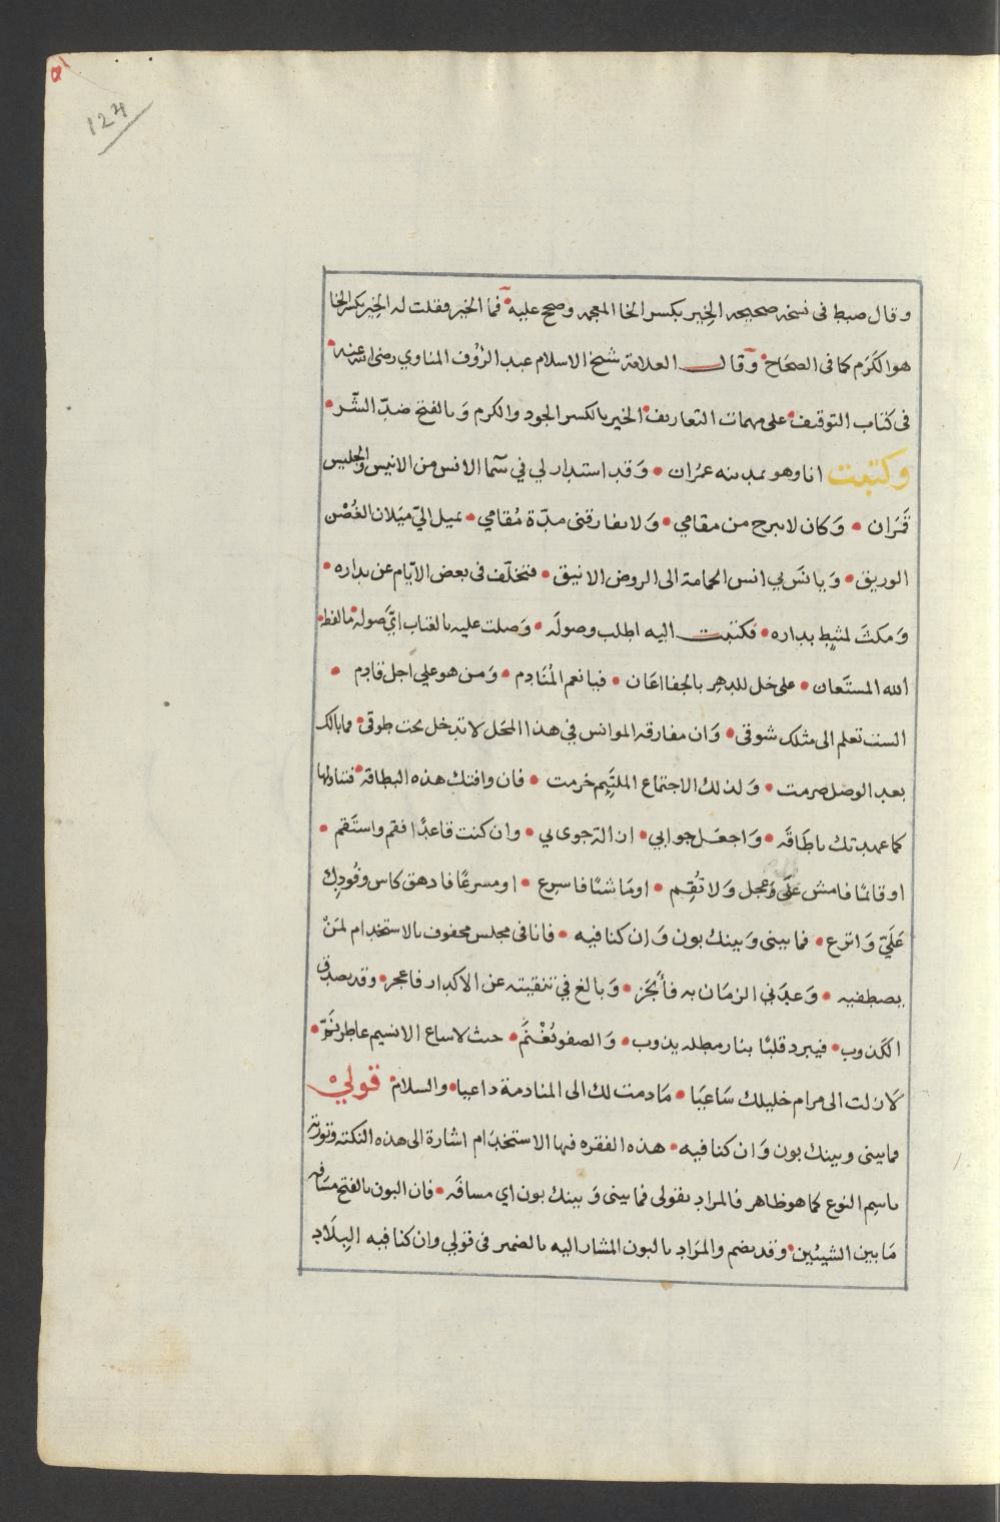 124
وقال ضبط فى نسخة صحيحه الخِير بكسر الخا المعجمه وصحح عليه فما الخير فقلت له الخير بكسر الخا
هو الكَرَم كما فى الصحاح وقال العلامة شيخ الاسلام عبد الرؤف المناوي رضى الله عنه
فى كتاب التوقيف على مهمات التعاريف الخير بالكسر الجود والكرم وَبالفتح ضدّ الشّر
وكتبت انا وهو بمدينه عمْران وَقد استدار لي في سَما الانس من الانيس والجليس
قمَران وَكان لا يبرح من مقامي وَلا يفارقنى مدّة مُقامي يميل اليّ ميَلان الغُصْن
الوريق وَيانسَ بي انس الحمامة الى الروض الانيق فتخلّف فى بعض الايّام عن بداره
وَمكثَ لمثبط بداره فكتبت اليه اطلب وصولَه وَصلت عليه بالعتاب ايّ صولة
الله المستَعان على خل للدهر بالجفا اعَان فيا نعم المُنَادم وَمن هو علي اجل قادم
الست تعلم الى مثلك شوقى وَان مفارقه الموانس في هذا المحَل لا تدخل تحت طوقى فما بالك
بعد الوصْل صرمت وَلذلك الاجتماع الملتَيِم خرمت فان وافتك هذه البطاقة فتناولها
كما عهدتك باطَاقَه وَاجعَل جوابي ان الترجوى بي وان كنت قاعدًا فقم واستَقم
او قائمًا فامش علَي وَعجل وَلا تُقِم اومَاشيًا فاسرع او مسرعًا فادهق كاس وفُودِك
عَلَيّ وَاترع فما بينى وَبينك بون وَان كنا فيه فانا فى مجلس محفوف بالاستخدام لمَنْ
يصطفيه وَعدَني الزمَان به فأنجَز وَبالغ في تنقيته عن الاكدار فاعجز وقد يصدق
الكَذوب فيبرد قلبًا بنار مطله يذوب وَالصفو يُغْتنَم حيث لا ساع الا نسيم عاطر
لَا زلت الى مرام خليلك سَاعيَا مَا دمت لك الى المنادمة داعيا والسلام قولي
فما بينى وبينك بون وَان كنا فيه هذه الفقره فيها الاستخدَام اشارة الى هذه النكته وتورية
باسِم النوع كما هو ظاهر فالمراد بقولى فما بينى وَبينك بون اي مسافَه فان البون بالفتح مسَافه
مَا بين الشيئين وقد يضم والمرَاد بالبون المشار اليه بالضمير فى قولي وان كنا فيه البِلَاد